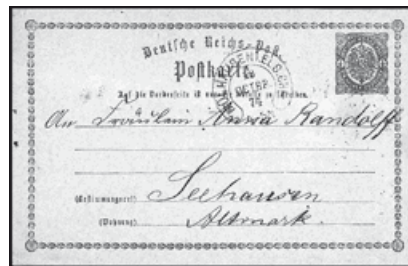 Deutsche Reichs-Post
Postkarte
Auf die Vorderseite ist nur die Adresse zu schreiben.
An Fräulein Anna Randolff
(Bestimmungsort)
Seehausen
(Wohnung)
Altmark.